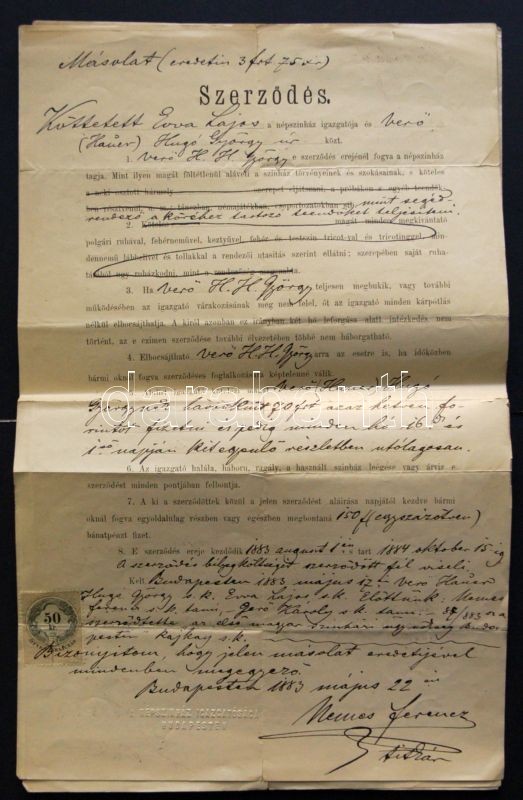 Másolat (eredetin 3 frt 75 xr)
Szerződés.
Köttetett Evva Lajos a népszinház igazgatója és Verő
(Hauer) Hugó György úr közt.
1. Verő H. H. György e szerződés erejénél fogva a népszinház
tagja. Mint ilyen magát föltétlenül aláveti a szinház törvényeinek és szokásainak, s köteles
a neki osztott bármely szerepet eljátszani, a próbákon s egyéb
ben résztvenni, a tánczban, némajátékban, csoportozatokban stb mint segéd
rendező a köréhez tartozó teendőket teljesíteni.
2. Köteles magát minden megkivántató
polgári ruhával, fehérneművel, keztyüvel, fehér és testszin tricot-val és tricotinggel, min-
dennemü lábbelivel és tollakkal a rendezői utasitás szerint ellátni; szerepeihez saját ruha-
tárából ugy ruházkodni, mint a rendezőség
3. Ha Verő H. H. György teljesen megbukik, vagy további
működésében az igazgató várakozásának meg nem felel, őt az igazgató minden kárpótlás
nélkül elbocsájthatja. A kiről azonban ez irányban két hó leforgása alatt intézkedés nem
történt, az e czimen szerződése további élvezetében többé nem háborgatható.
4. Elbocsájtható Verő H. H. György arra az esetre is, ha időközben
bármi okn fogva szerződéses foglalkozására képtelenné válik.
Verő (Hauer) Hugó
György nek havonkint 70 frt azaz hetven fo-
rintot fizetni és pedig minden hó 16 án és
1 ső napján két egyenlő részletben utólagosan.
6. Az igazgató halála, háboru, ragály, a használt szinház leégése vagy árviz e
szerződést minden pontjában felbontja.
7. A ki a szerződöttek közül a jelen szerződést aláirása napjától kezdve bármi
oknál fogva egyoldalulag részben vagy egészben megbontaná 150 f (egyszázötven)
bánatpénzt fizet.
8. E szerződés ereje kezdődik 1883 augustus 1 én s tart 1884 oktober 15 ig
A szerződés bélyegköltségét szerződött fél viseli
Kelt Budapesten 1883 május 17 – Verő Hauer
Hugó György s. k. Evva Lajos s. k. Előttünk: Nemes
Ferencz s. k. tanu, – Gerő Károly s. k. tanu. – 87/883 sz a
szerződtette az első magyar szinházi ügynökség Buda-
pesten Rajkay s. k.
Bizonyitom, hogy jelen másolat eredetijével
mindenben megegyező.
Budapesten 1883 május 22 én
Nemes Ferencz
titkár
50
kr
A NÉPSZINHÁZ IGAZGATÓSÁGA
BUDAPESTEN
darabanth